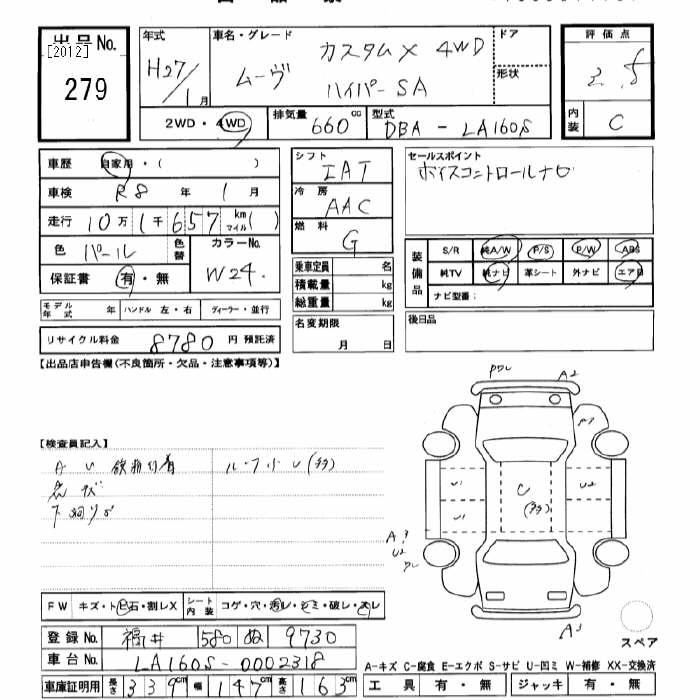 出品No.
[2012]
279
年式
H27/1月
車名・グレード
ムーヴ
カスタムX 4WD
ハイパーSA
ドア
形状
評価点
内装
C
2WD・4WD
排気量
660cc
型式
DBA - LA160S
車歴 自家用・( )
車検 R8年1月
走行 10万1千657 km マイル( )
色 パール
色替
カラーNo.
W24.
保証書 有・無
モデル年式 年 ハンドル 左・右 ディーラー・並行
リサイクル料金 8780 円 預託済
シフト
IAT
冷房
AAC
燃料
G
乗車定員 名
積載量 kg
総重量 kg
名変期限
月 日
セールスポイント
ボイスコントロールナビ
装備品
S/R 純A/W P/S P/W ABS
純TV 純ナビ 革シート 外ナビ エアB
ナビ型番:
後日品
【出品店申告欄(不良箇所・欠品・注意事項等)】
【検査員記入】
A U
ルーフ小U(多)
下廻りS
A2
U1
U1
C
(多)
U2
A3
U2
A3
スペア
FW キズ・トビ石・割レX シート内装 コゲ・穴・汚レ・シミ・破レ・スレ
登録No. 福井 580 ぬ 9730
車台No. LA160S-0002318
車庫証明用 長さ 339cm 幅 147cm 高さ 163cm
A-キズ C-腐食 E-エクボ S-サビ U-凹ミ W-補修 XX-交換済
工具 有・無 ジャッキ 有・無